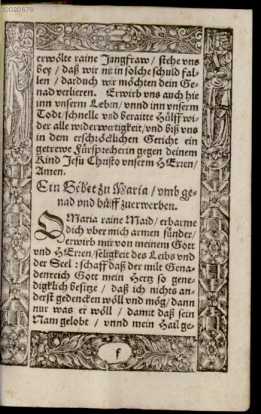 erwölte raine Jungfraw / stehe vns
bey / daß wir nit in solche schuld fal-
len / dardurch wir möchten dein Ge-
nad verlieren. Erwirb vns auch hie
inn vnserm Leben / vnnd inn vnserm
Todt / schnelle vnd beraitte Hülff wi-
der alle widerwertigkeit / vnd biß vns
in dem erschröcklichen Gericht ein
getrewe Fürsprecherin gegen deinem
Kind Jesu Christo vnserm HErren /
Amen.
Ein Gebet zu Maria / vmb ge-
nad vnd hülff zuerwerben.
O Maria raine Maid / erbarme
dich vber mich armen sünder /
erwirb mir von meinem Gott
vnd HErren / seligkeit des Leibs vnd
der Seel : schaff daß der milt Gena-
denreich Gott mein Hertz so gene-
digklich besitze / daß ich nichts an-
derst gedencken wöll vnd mög / dann
nur was er wöll / damit daß sein
Nam gelobt / vnnd mein Hail ge-
f